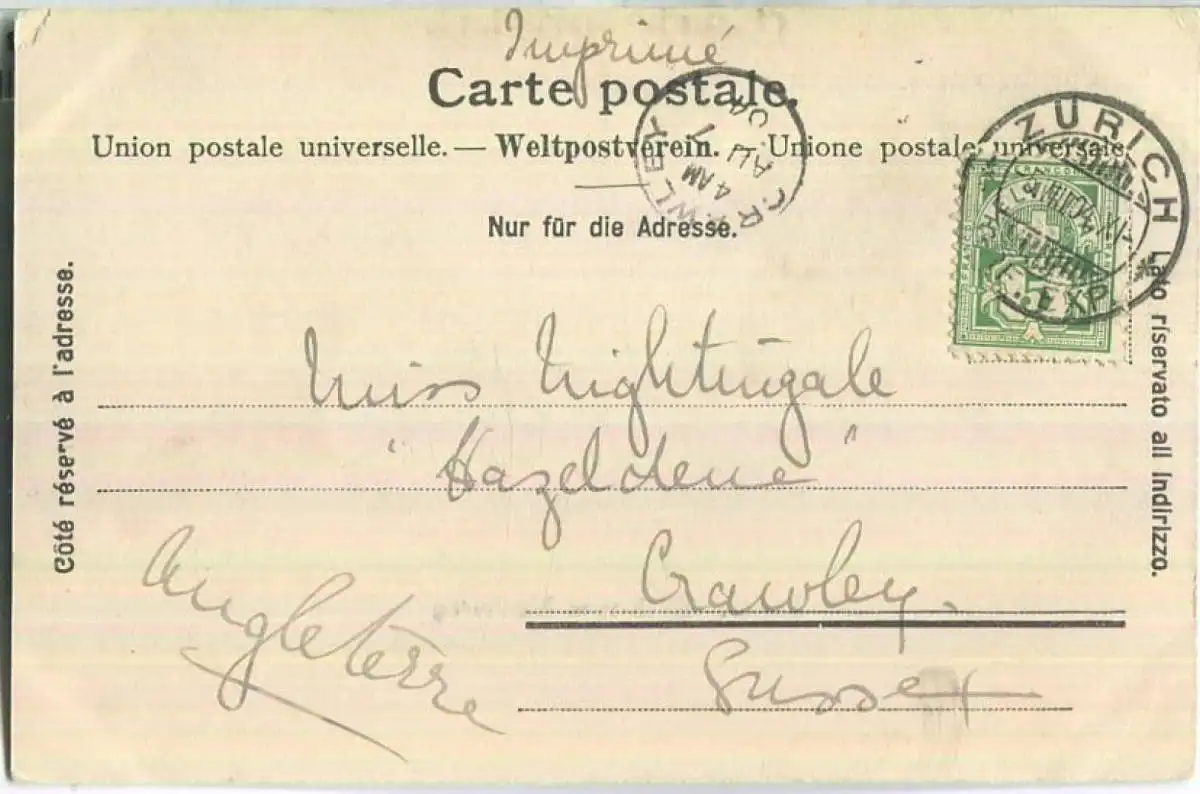 Imprimé
Carte postale.
Union postale universelle. — Weltpostverein. — Unione postale universale
Nur für die Adresse.
CRAWLEY
4 AM
AU 7
04
ZÜRICH
EXP.
FRANCO
Côté réservé à l'adresse.
Lato riservato all indirizzo.
Miss Nightingale
"Hazeldene"
Crawley.
Sussex
Angleterre